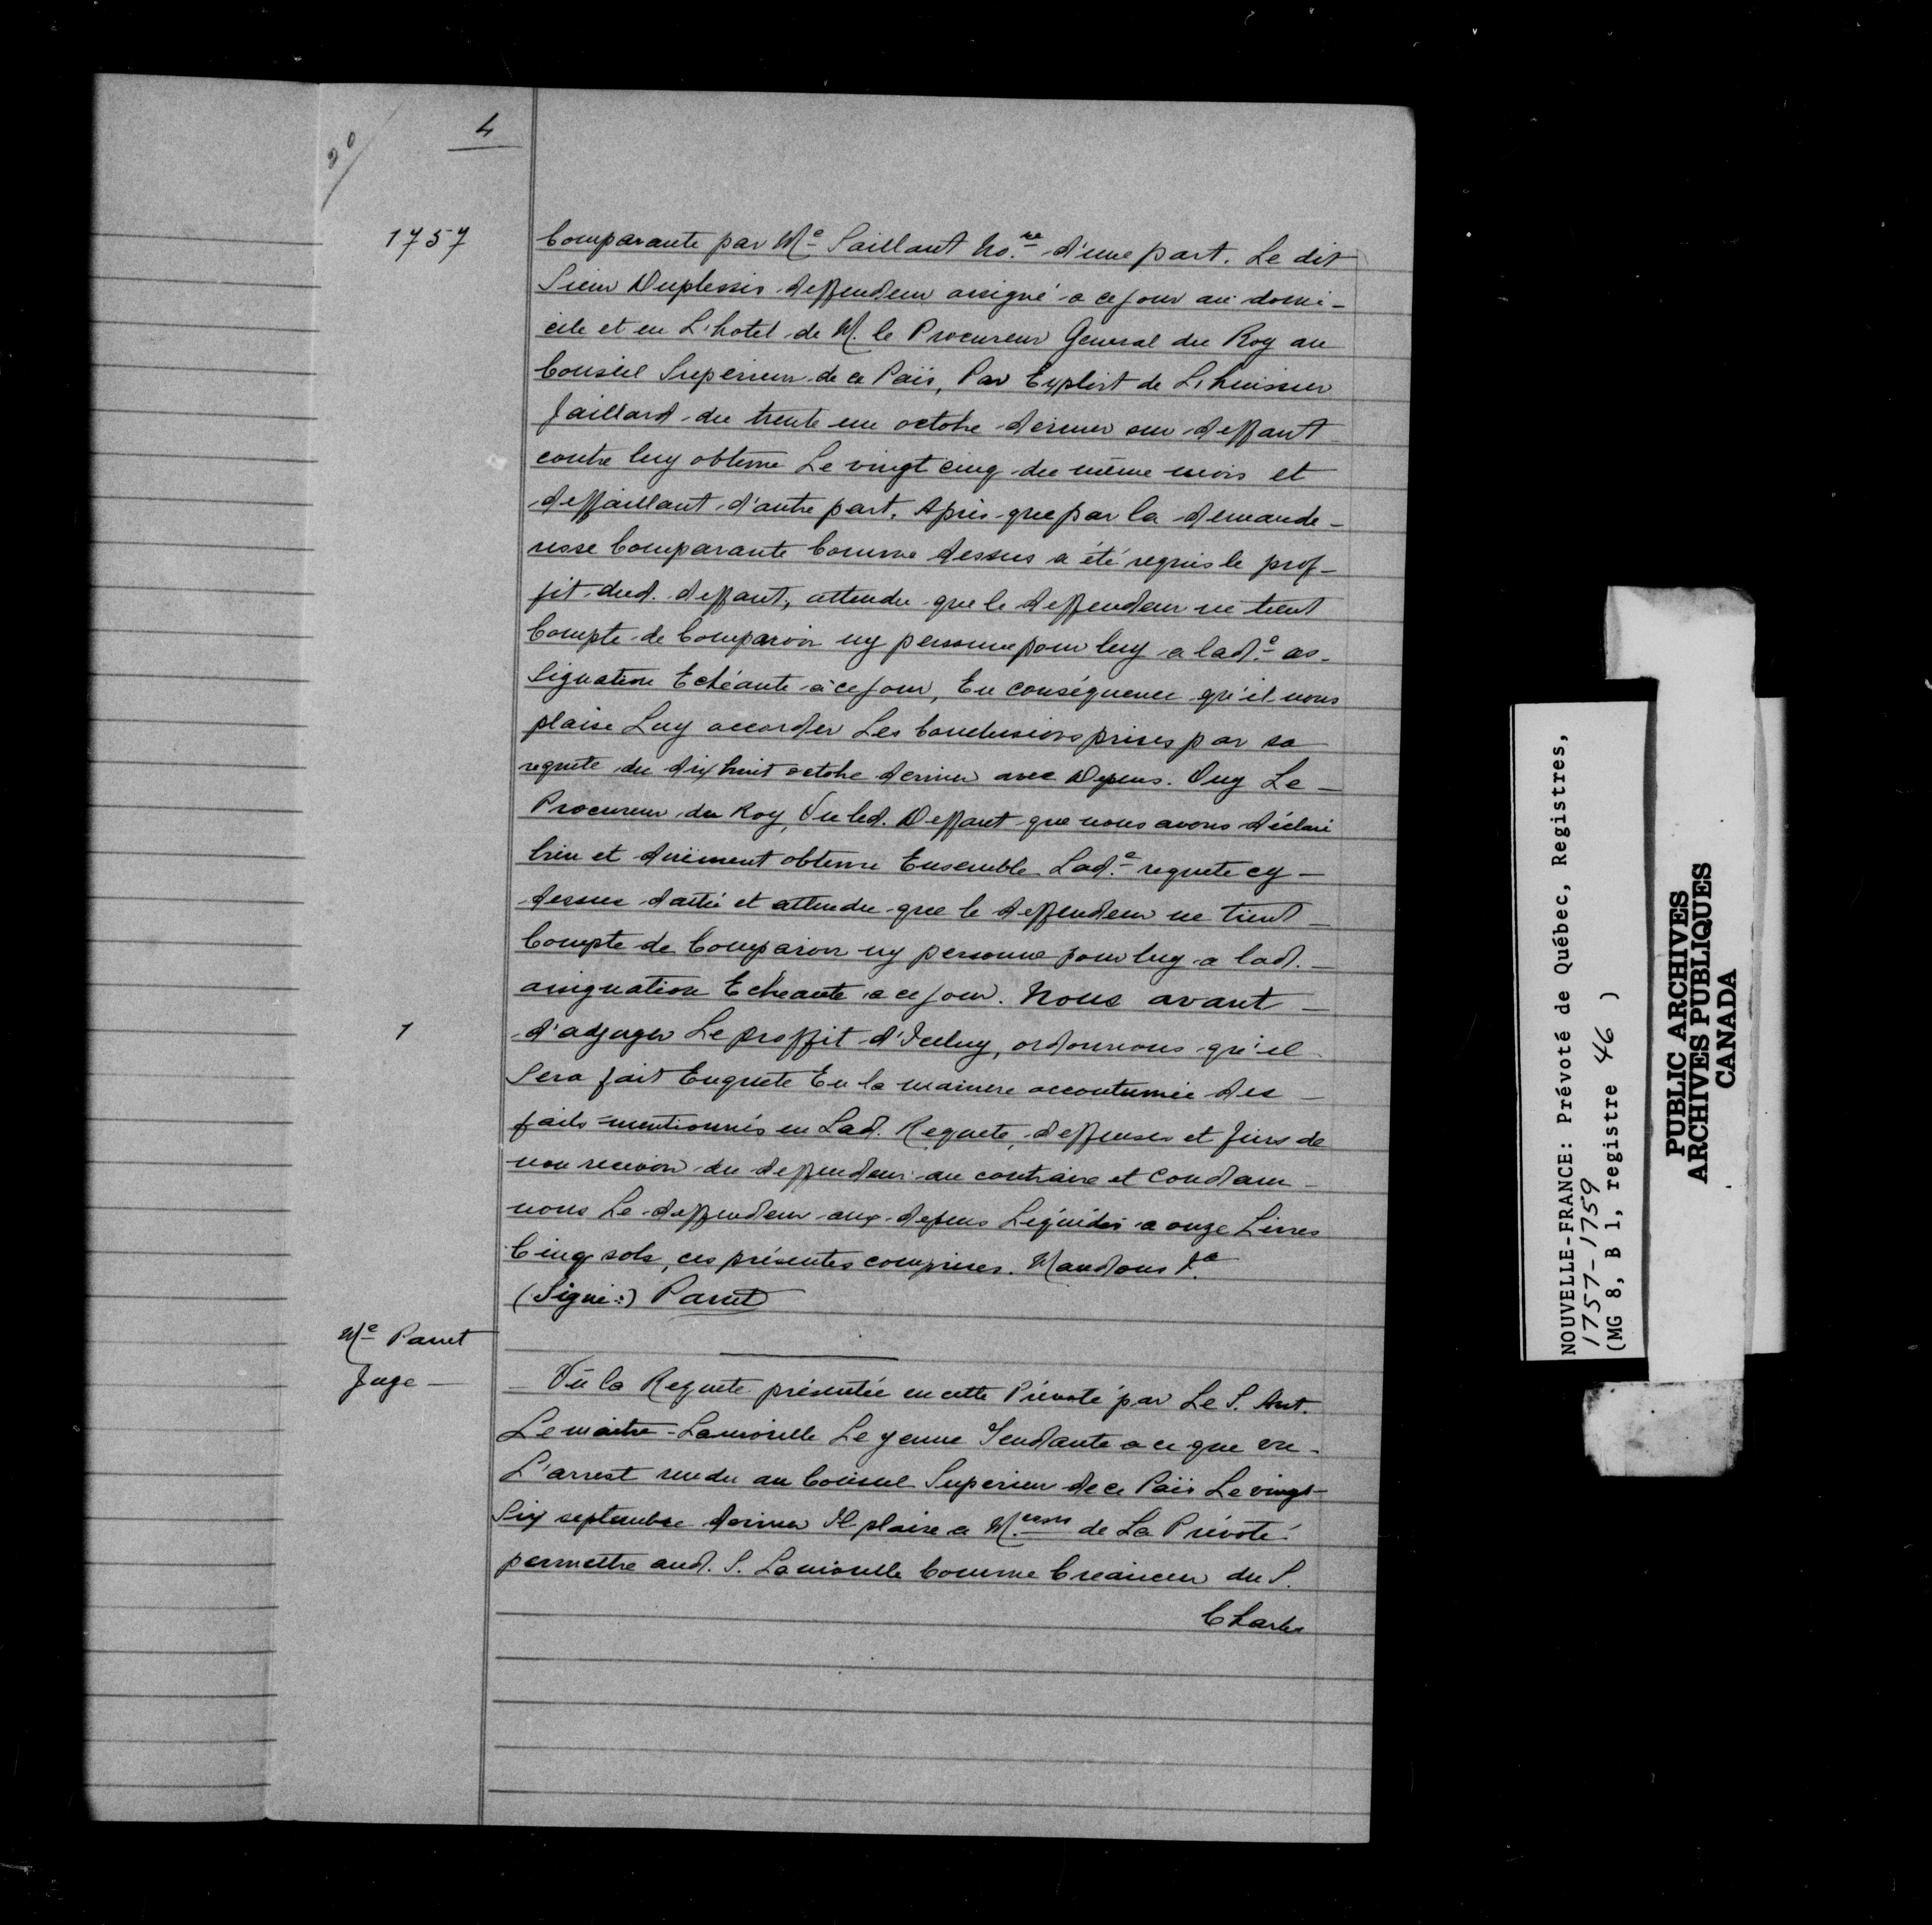 20
4
1757
Comparante par Me Saillant No.re d'une part. Le dit
Sieur Duplessis deffendeur assigné a ce jour au domi-
cile et en L'hotel de M. le Procureur General du Roy au
Conseil Superieur de ce Païs, Par Exploit de L'huissier
Jaillard du trente un octobre dernier sur deffaut
contre luy obtenu Le vingt cinq du même mois et
deffaillant d'autre part. Après que par la demande-
resse Comparante Comme dessus a été requis le prof-
fit dud. deffaut, attendu que le deffendeur ne tient
Compte de Comparoir ny personne pour luy a lad.e as-
signation Echéante à ce jour, En conséquence qu'il nous
plaise Luy accorder Les Conclusions prises par sa
requete du dix huit octobre dernier avec Depens. Ouy Le
Procureur du Roy, Vu led. Deffaut que nous avons déclaré
bien et duëment obtenu Ensemble Lad.e requete cy-
dessus dattée et attendu que le deffendeur ne tient
Compte de Comparoir ny personne pour luy a lad.
assignation Echeante a ce jour. Nous avant
1
d'adjuger Le proffit d'Iceluy, ordonnons qu'il
Sera fait Enquete En la maniere accoutumée des
faits mentionnés en Lad. Requete, deffenses et fins de
non recevoir du deffendeur au contraire et Condam-
nons Le deffendeur aux depens Liquidés a onze Livres
Cinq sols, ces présentes comprises. Mandons &a
(Signé:) Panet
Me Panet
Juge -
Vû la Requete présentée en cette Prévoté par Le S. Ant.
Lemaitre-Lamorille Le jeune Tendante a ce que vu
L'arrest rendu au Conseil Superieur de ce Païs Le vingt
Six septembre dernier Il plaise a M.essrs de La Prévoté
permettre aud. S. Lamorille Comme Créancier du S.
Charles
NOUVELLE-FRANCE: Prévoté de Québec, Registres,
1757-1759
(MG 8, B 1, registre 46 )
PUBLIC ARCHIVES
ARCHIVES PUBLIQUES
CANADA